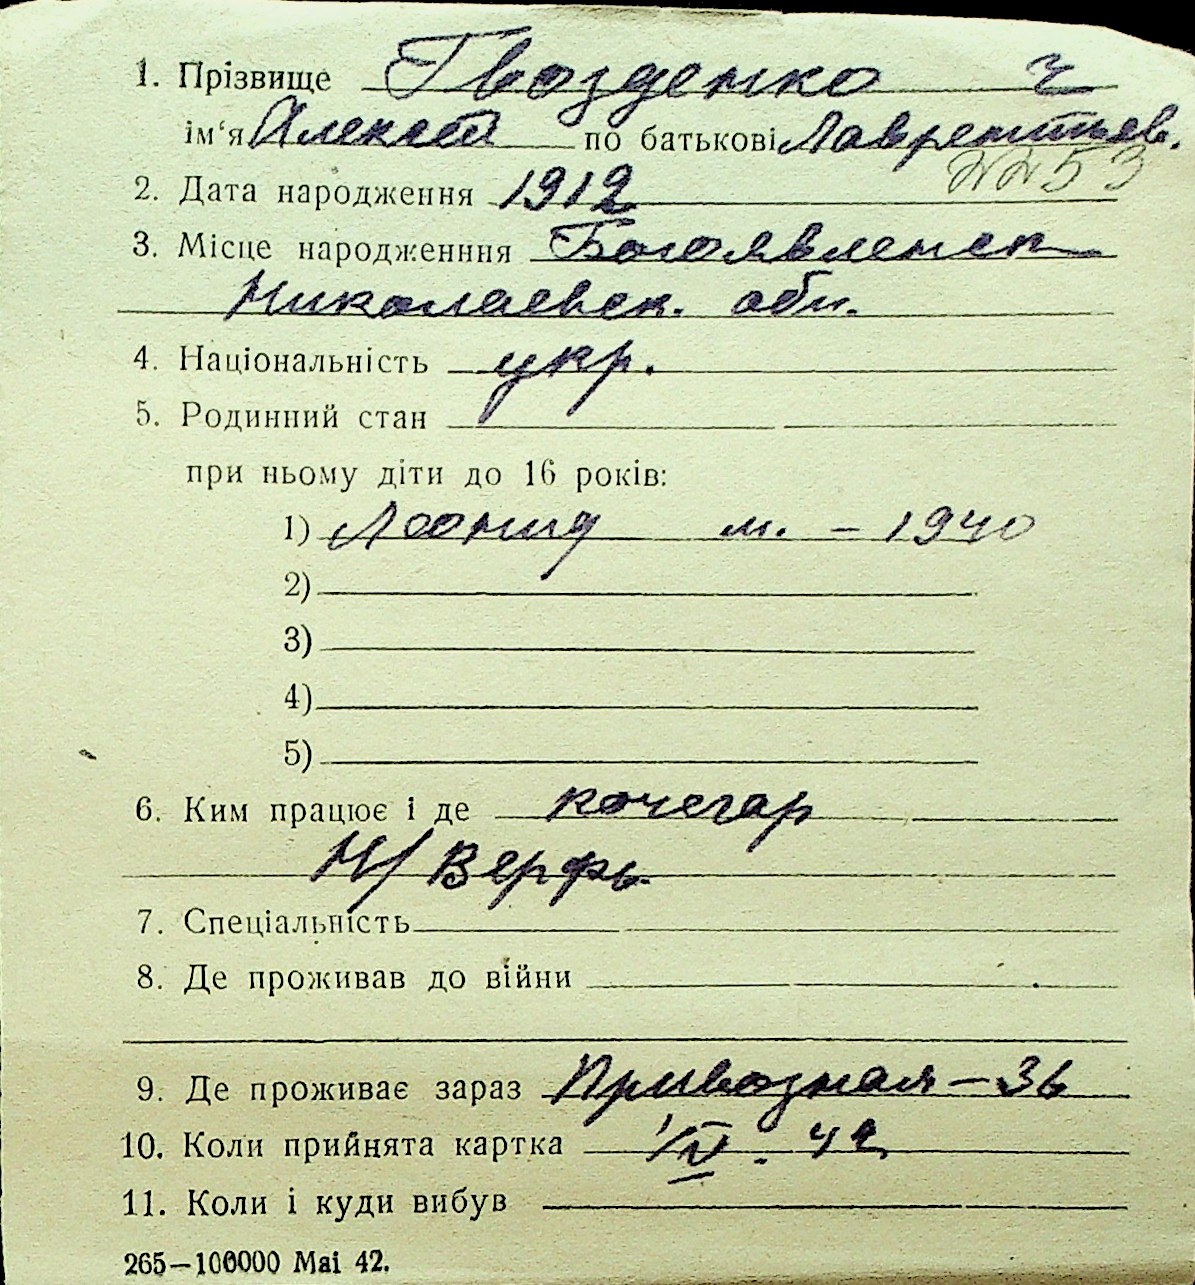 1. Прізвище Гвозденко ч
ім‘я Алексей по батькові Лаврентьев.
53
2. Дата народження 1912
3. Місце народженння Богоявленск
Николаевск. обл.
4. Національність укр.
5. Родинний стан
при ньому діти до 16 років:
1) Леонид м. – 1940
2)
3)
4)
5)
6. Ким працює і де кочегар
Н/Верфь
7. Спеціальність
8. Де проживав до війни
9. Де проживає зараз Привозная – 36
10. Коли прийнята картка IV. 42
11. Коли і куди вибув
265—100000 Mai 42.